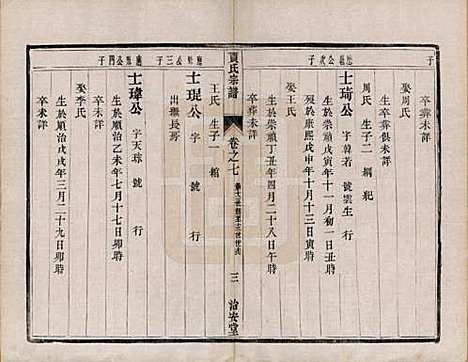 子
娶周氏
生卒葬俱未詳
應聰公次子
士琦公 字韓若 號雲生 行
生於崇禎戊寅年十一月初一日丑時
卒於康熙戊申年十月十三日寅時
周氏 生子二 綱 紀
生於崇禎丁丑年四月二十八日午時
卒葬未詳
賈氏宗譜
卷之七
三
治安堂
王氏 生子一 綰
卒葬未詳
應㷂公三子
士瑅公 字 號 行
出繼長房
公四子
士瑋公 字天球 號 行
生於順治乙未年七月十七日卯時
卒未詳
娶李氏
生於順治戊戌年三月二十九日卯時
卒未詳